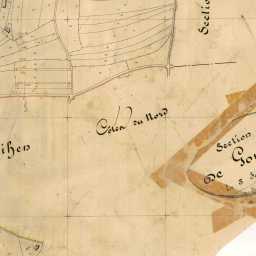 Section
Coten du Nord
ihen
Section
De Gou